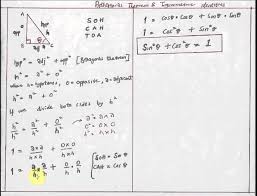 Pythagoras Theorem & Trigonometric Identities
A
B
C
hyp
opp
adj
θ
SOH
CAH
TOA
hyp² = adj² + opp² [Pythagoras theorem]
h² = a² + o²
where h = hypotenuse, o = opposite, a = adjacent
h² = a² + o²
If we divide both sides by h²
h²/h² = a²/h² + o²/h²
a² = a×a
o² = o×o
h² = h×h
1 = a×a/h×h + o×o/h×h
1 = a/h × a/h + o/h · o/h
SOH = Sin θ
CAH = Cos θ
1 = cosθ·cosθ + sinθ·sinθ
1 = cos²θ + sin²θ
Sin²θ + cos²θ = 1